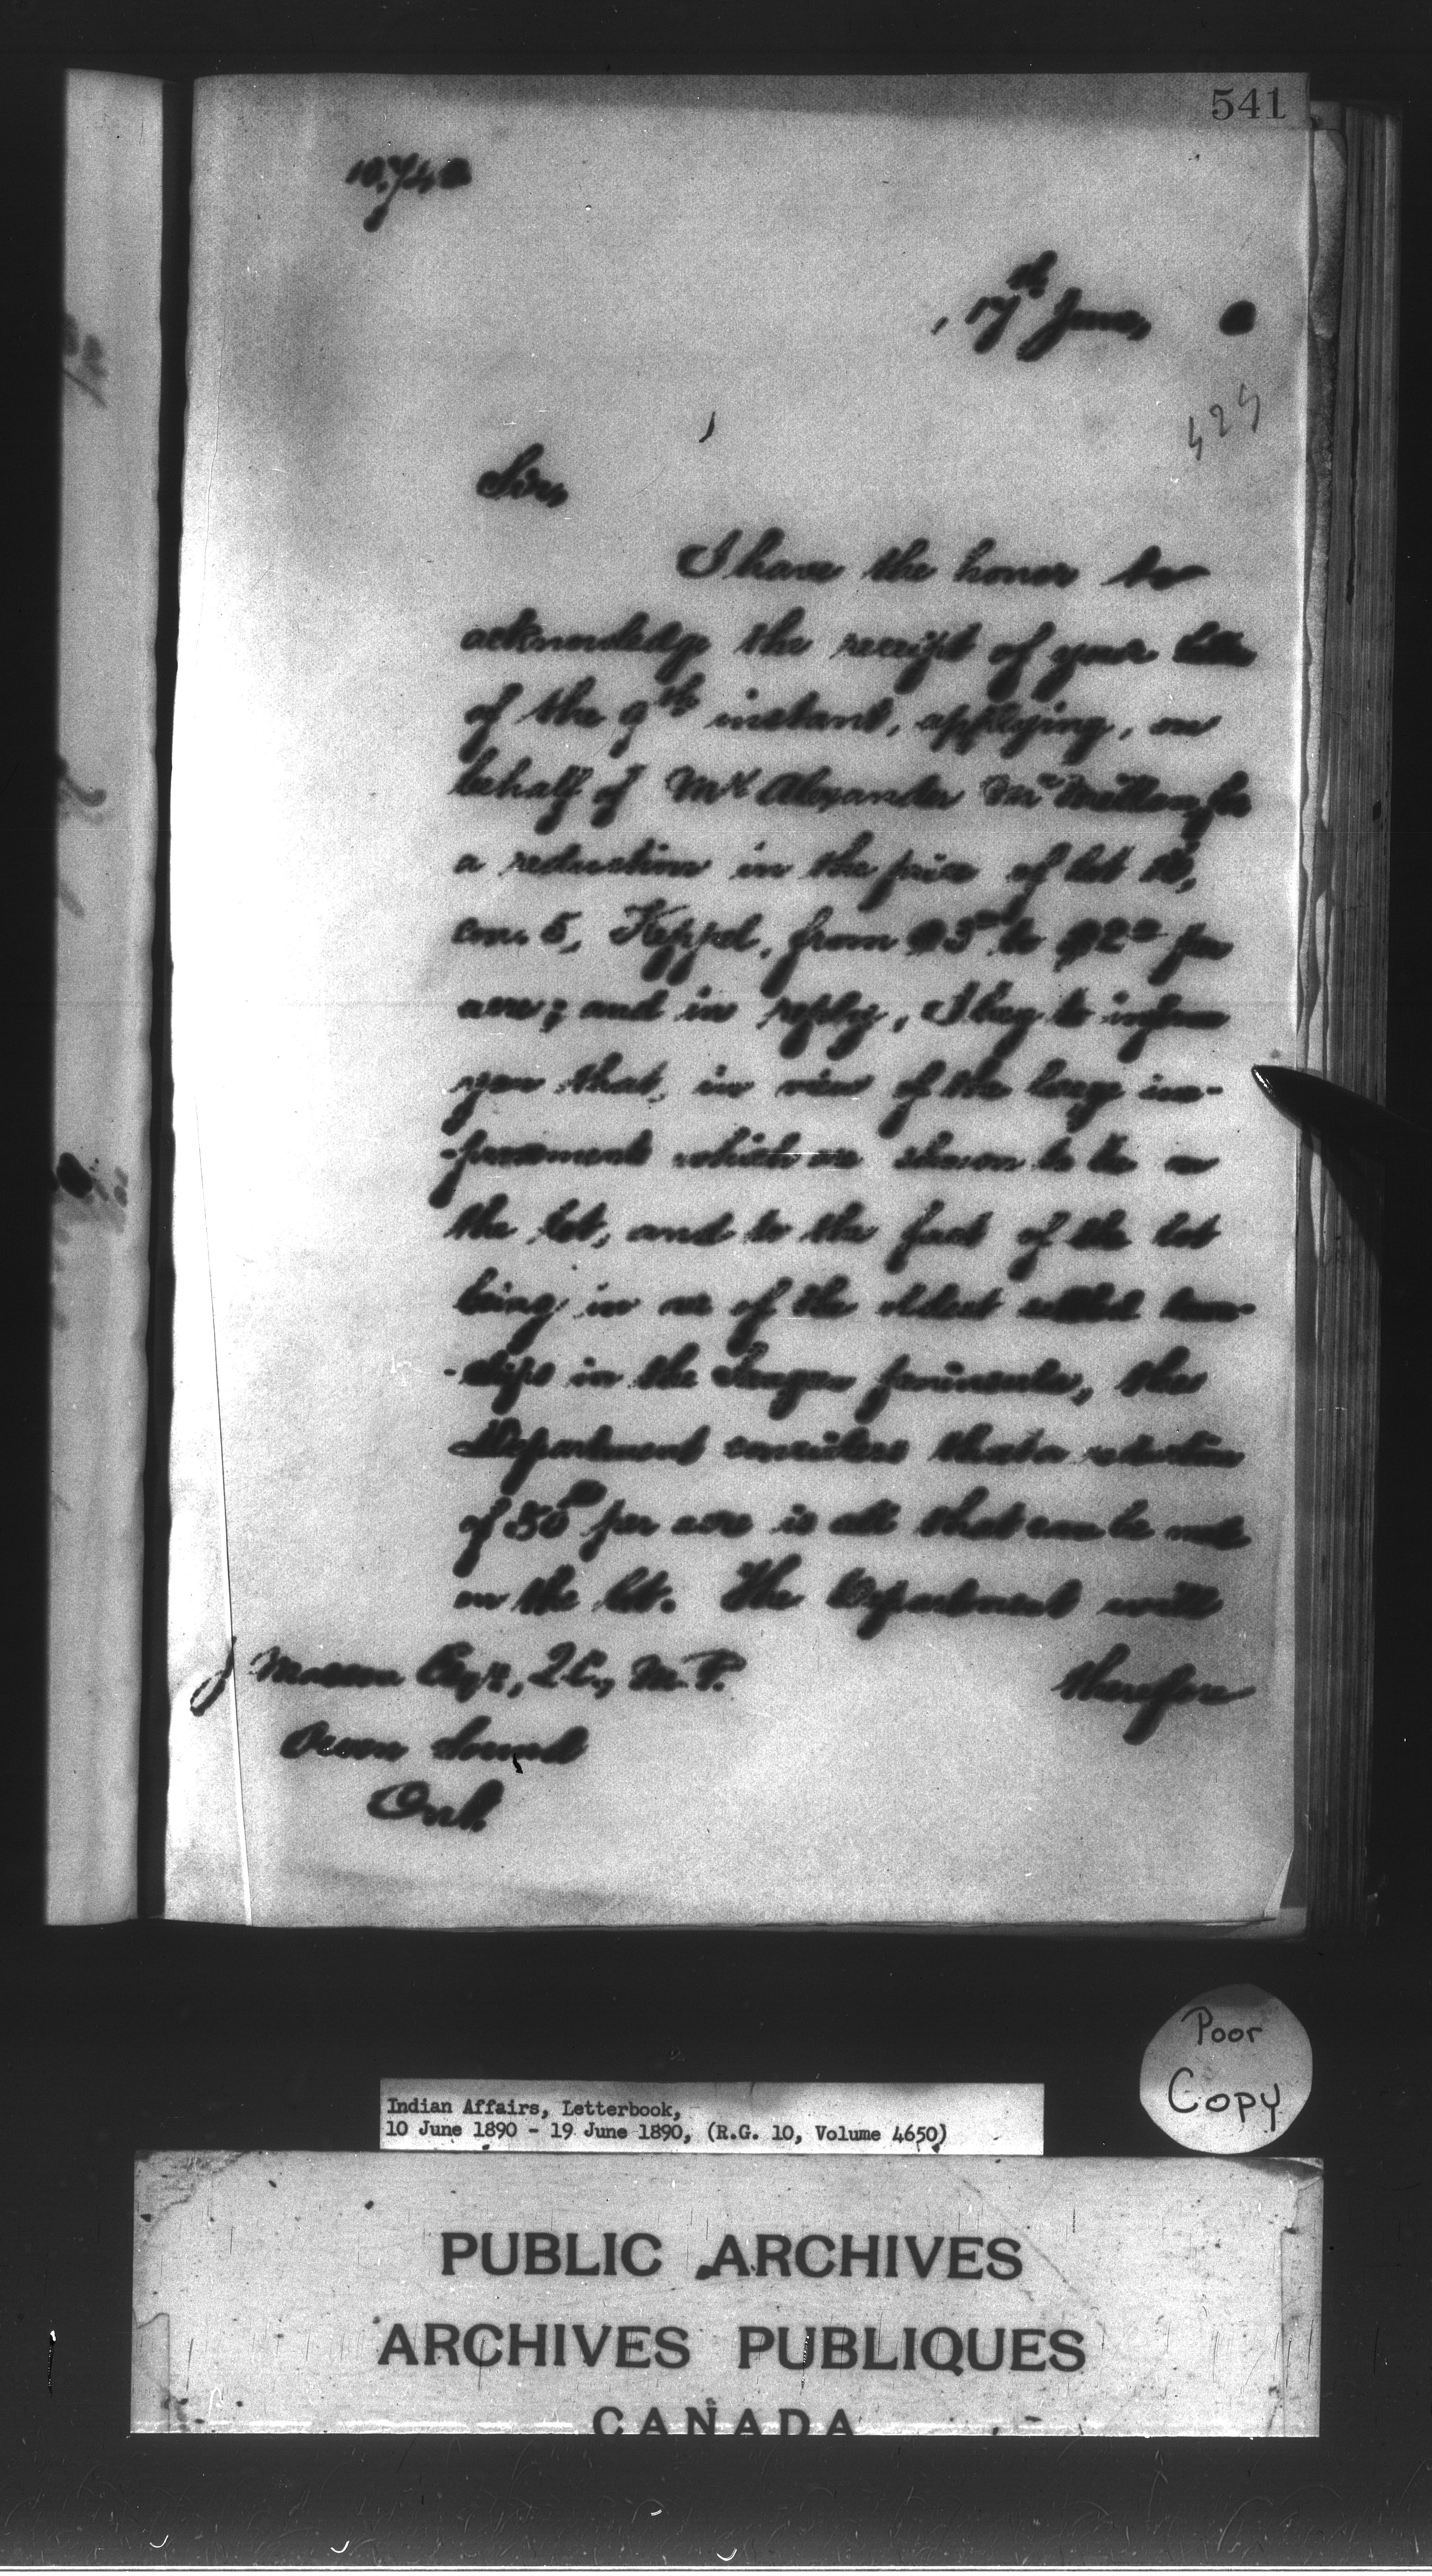 541
17th June, 0
429
Sir,
I have the honor to
acknowledge the receipt of your letter
of the 9th instant, applying, on
behalf of Mr Alexander McMillan, for
a reduction in the price of lot
con. 5, Keppel, from $3 to $2 per
acre; and in reply, I beg to inform
you that, in view of the large im-
-provements which are shown to be on
the lot, and to the fact of the lot
being in one of the oldest settled town-
-ships in the Saugeen peninsula, the
Department considers that a reduction
of 50 per acre is all that can be made
on the lot. The Department will
therefore
J Masson Esqr, Q.C., M.P.
Owen Sound
Ont.
Poor
Copy
Indian Affairs, Letterbook,
10 June 1890 - 19 June 1890, (R.G. 10, Volume 4650)
PUBLIC ARCHIVES
ARCHIVES PUBLIQUES
CANADA